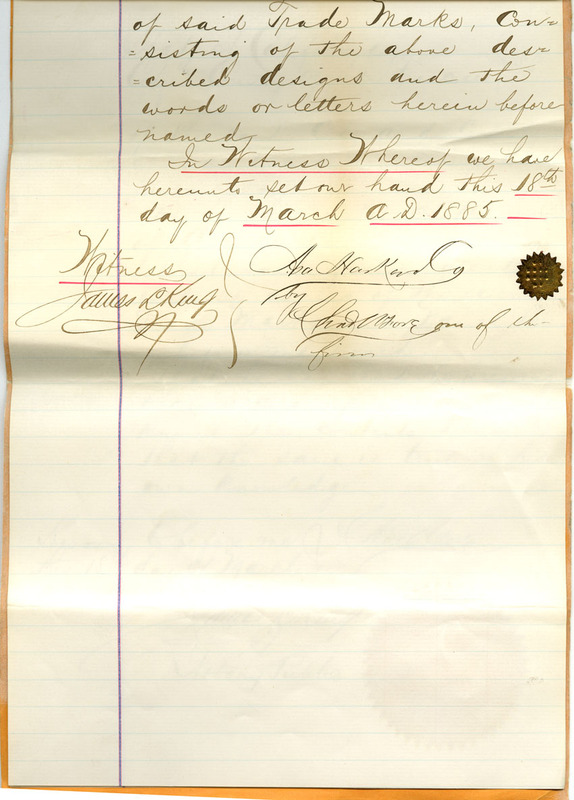 of said Trade Marks, Con-
=sisting of the above des=
=cribed designs and the
words or letters herein before
named
In Witness Whereof we have
hereunto set our hand this 18th
day of March A.D. 1885.
Witness
James L King
by
one of th-
firm